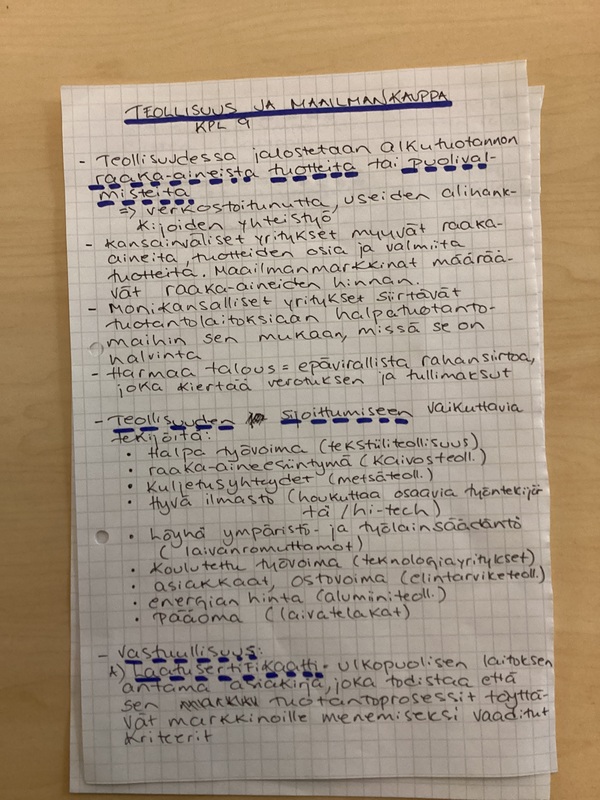 TEOLLISUUS JA MAAILMANKAUPPA
KPL 9
- Teollisuudessa jalostetaan alkutuotannon
raaka-aineista tuotteita tai puolival-
misteita
=> verkostoitunutta, useiden alihank-
kijoiden yhteistyö
- Kansainväliset yritykset myyvät raaka-
aineita, tuotteiden osia ja valmiita
tuotteita. Maailmanmarkkinat määrää-
vät raaka-aineiden hinnan.
- Monikansalliset yritykset siirtävät
tuotantolaitoksiaan halpatuotanto-
maihin sen mukaan, missä se on
halvinta
- Harmaa talous = epävirallista rahansiirtoa,
joka kiertää verotuksen ja tullimaksut
- Teollisuuden sijoittumiseen vaikuttavia
tekijöitä:
• Halpa työvoima (tekstiiliteollisuus)
• raaka-aineesiintymä (kaivosteoll.)
• kuljetusyhteydet (metsäteoll.)
• Hyvä ilmasto (houkuttaa osaavia työntekijö-
tä /hi-tech)
• Löyhä ympäristö- ja työlainsäädäntö
(laivanromuttamot)
• Koulutettu työvoima (teknologiayritykset)
• asiakkaat, ostovoima (elintarviketeoll.)
• energian hinta (alumiiniteoll.)
• Pääoma (laivatelakat)
- Vastuullisuus:
A) Laatusertifikaatti - ulkopuolisen laitoksen
antama asiakirja, joka todistaa että
sen tuotantoprosessit täyttä-
vät markkinoille menemiseksi vaaditut
kriteerit